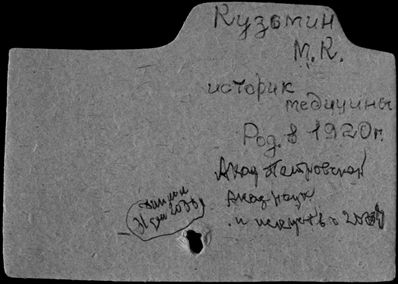 Кузьмин
М.К.
историк
медицины
Род. в 1920 г.
Акад Петровская
Акад. наук
и искусств с